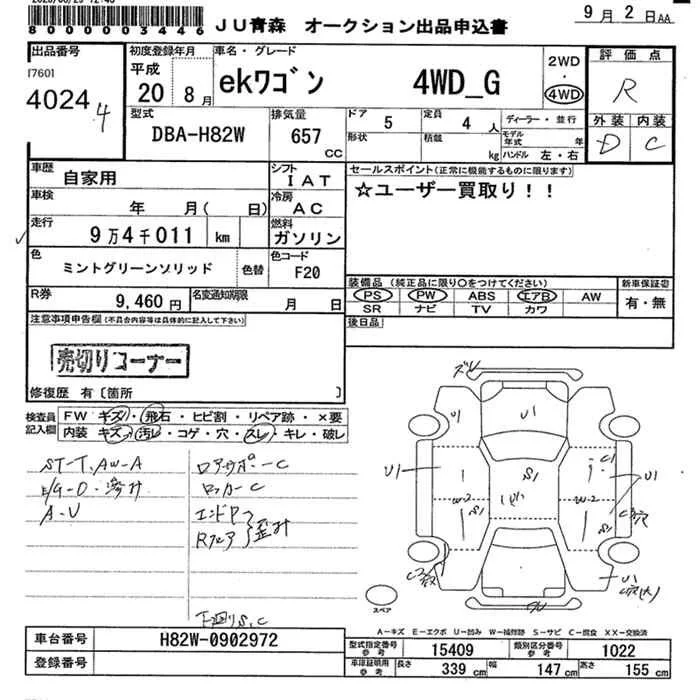 80000003446
JU青森 オークション出品申込書
9月2日AA
出品番号
17601
40244
初度登録年月
平成
20 8月
車名・グレード
ekワゴン 4WD_G
2WD
・
4WD
評価点
R
外装 内装
D C
型式
DBA-H82W
排気量
657
CC
ドア
5
定員
4 人
形状
積載
kg
ディーラー・並行
モデル年式 年
ハンドル 左・右
車歴
自家用
シフト
IAT
セールスポイント(正常に機能するものに限ります)
☆ユーザー買取り!!
車検
年 月( 日)
冷房
AC
走行
9万4千011 km
燃料
ガソリン
色
ミントグリーンソリッド
色替
色コード
F20
装備品(純正品に限り○をつけてください)
PS PW ABS エアB AW
SR ナビ TV カワ
新車保証書
有・無
R券
9,460円
名変通知期限
月 日
後日品
注意事項申告欄(不具合内容等は具体的に記入して下さい)
売切りコーナー
修復歴 有〔箇所 〕
検査員記入欄
FW キズ・飛石・ヒビ割・リペア跡・×要
内装 キズ・汚レ・コゲ・穴・スレ・キレ・破レ
ST-T.AW-A
A-U
ロッカーC
下廻りS,C
ズレ
U1
U1
U1
U1
U1
S1
C1
W-2
W-2
S1
U1
スペア
A-キズ E-エクボ U-凹み W-補修跡 S-サビ C-腐食 XX-交換済
車台番号
H82W-0902972
登録番号
型式指定番号
参考
15409
類別区分番号
参考
1022
車庫証明用
参考
長さ 339 cm 幅 147 cm 高さ 155 cm